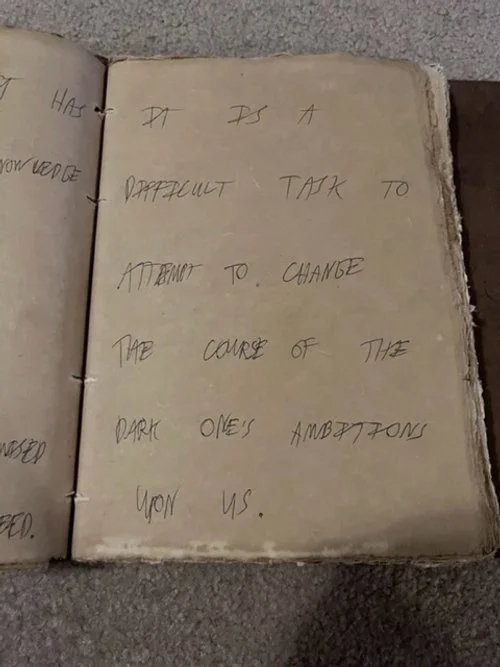 HAS
IT IS A
DIFFICULT TASK TO
ATTEMPT TO CHANGE
THE COURSE OF THE
DARK ONE'S AMBITIONS
UPON US.